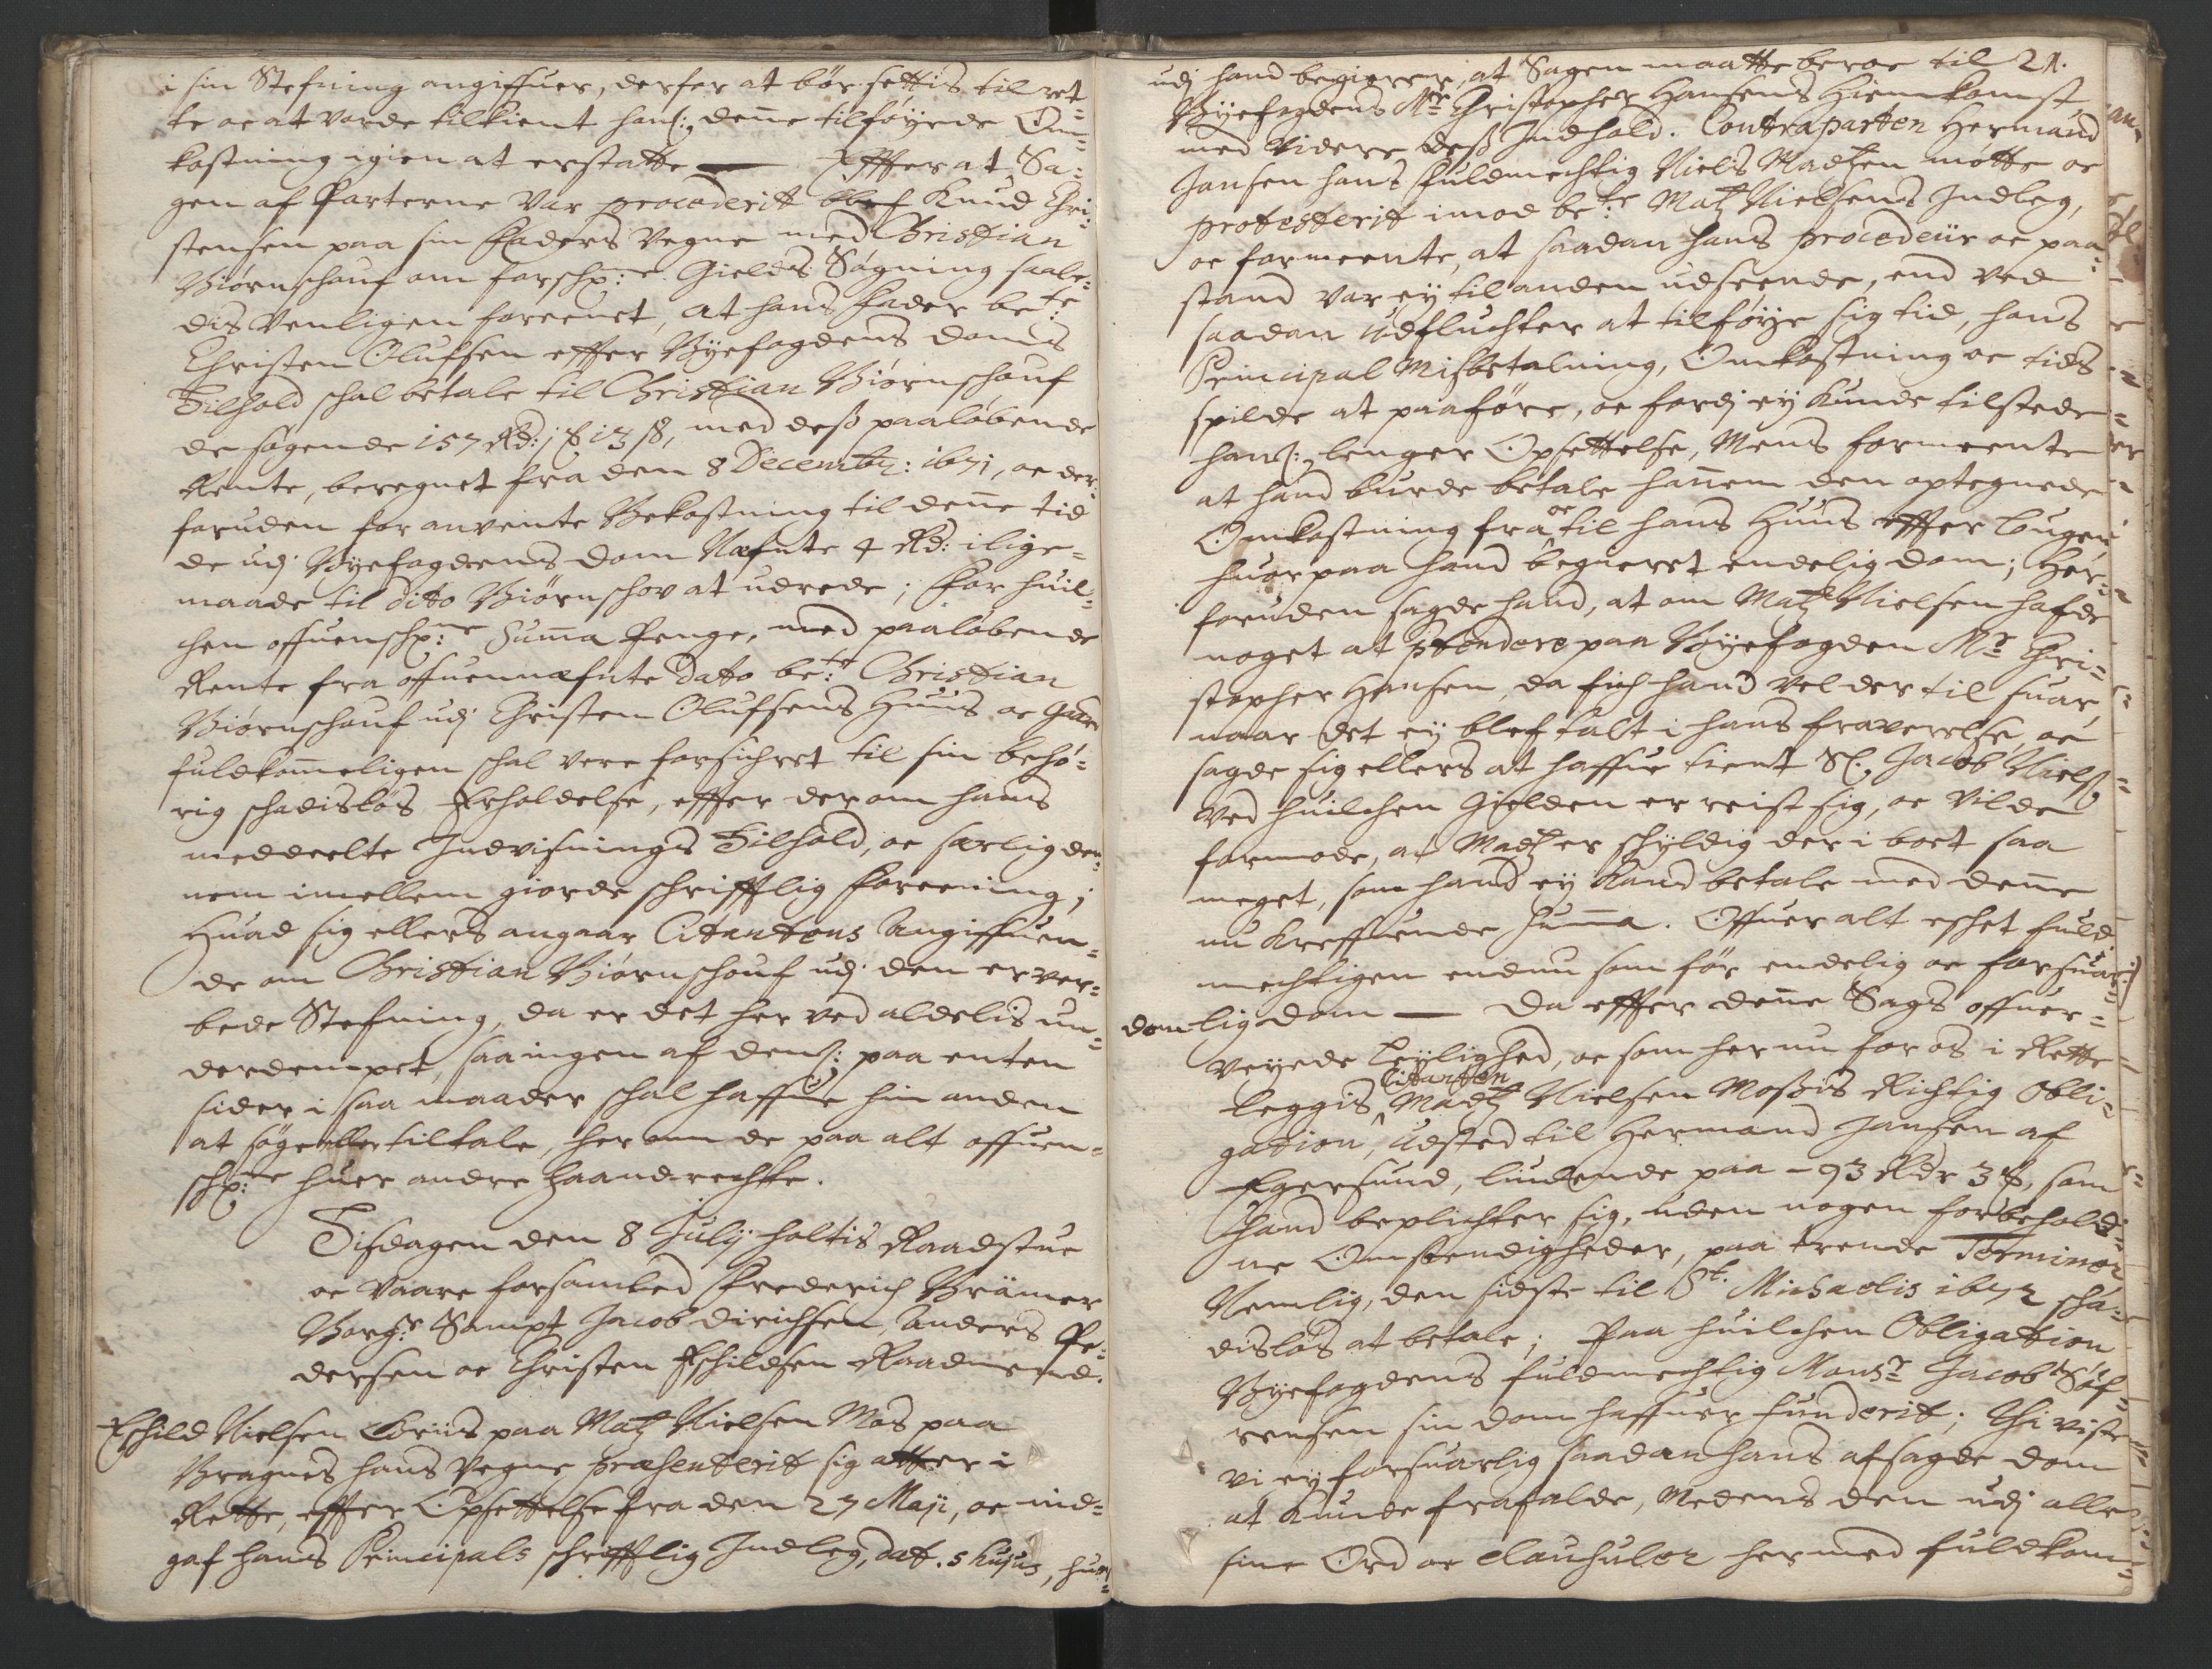 i sin Stefning angiffuer, derfor at bør settis til ret=
te oc at vorde tilkient hans: denne tilføyede Om=
kostning igien at erstatte — Effter at Sa=
gen af Parterne var procederit blef Knud Chri=
stensen paa sin Faders Vegne med Christian
Biørnschouf om forschr:ne Gields Søgning saale=
dis venligen foreenet, at hans Fader bete:
Christen Olufsen effter Byefogdens Doms
Tilhold schal betale til Christian Biørnschouf
de søgende 157 Rd: j ß 13 ß, med dess paaløbende
Rente, beregnet fra den 8 Decembr: 1671, oc der=
foruden for anvente Bekostning til denne tid
de udj Byefogdens dom Nefnte 4 Rd: i lige=
maade til dito Biørnschov at udrede; for huil=
chen offuenschr:ne Summa Penge, med paaløbende
Rente fra offuennefnte dato bete: Christian
Biørnschouf udj Christen Olufsens Huus oc Gaar
fuldkommeligen schal vere forsichret til sin behø=
rig schadisløs Erholdelse, effter derom hans
meddeelte Indvisnings Tilhold, oc særlig den=
nem imellem giorde schrifftlig foreening;
Huad sig ellers angaar Citantens Angiffuen=
de om Christian Biørnschouf udj den erver=
bede Stefning, da er det her ved aldelis un=
derdempet, saa ingen af dens: paa enten
sider i saa maader schal haffue hin anden
at søge eller tiltale, herom de paa alt offuen=
schr:ne huer andre haandrechte.
Tisdagen den 8 Julij holtis Raadstue
oc vaare forsamled Frederich Brämer
Borgr: Sampt Jacob Dirichsen, Anders Pe=
dersen oc Christen Eschildsen Raadmend.
Eschild Nielsen Coriis paa Matz Nielsen Mos paa
Bragnes hans Vegne præsenterit sig atter i
Rette, effter Opsettelse fra den 27 Maji, oc ind=
gaf hans Principals schrifftlig Indleg, dat. 5 hujus, hur=
udj hand begierer, at Sagen maatte beroe til 21.
Byefogdens Mr Christopher Hansens Hiemkomst
med videre dess Indhold. Contraparten Hermand
Jansen hans fuldmechtig Niels Madtzen møtte oc
protesterit imod bete: Matz Nielsens Indleg,
oc formeente, at saadan hans procedeur oc paa=
stand var ey til anden udseende, end ved
saadan udfluchter at tilføye sig tid, hans
Principal Misbetalning, Omkostning oc tids
spilde at paaføre, oc fordj ey kunde tilstede
hans: lenger Opsettelse, Mens formeente
at hand burde betale hannem den optegnede
Omkostning fra oc til hans Huus effter Lougen
huorpaa hand begieret endelig dom; Her=
foruden sagde hand, at om Matz Nielsen hafde
noget at prtendere paa Byefogden Mr Chri=
stopher Hansen, da fich hand vel der til suar,
naar det ey blef talt i hans fraverelse, oc
sagde sig ellers at haffue tient Sl. Jacob Nielss
ved huilchen Gielden er reist sig, oc vilde
formode, at Madtz er schyldig der i boet saa
meget, som hand ey kand betale med denne
nu kreffuende Summa. Offuer alt eschet fuld=
mechtigen endnu som før endelig oc forsuar=
lig dom — Da effter denne Sags offuer=
veyede Leylighed, oc som her nu for os i Rette
leggis Citanten Madtz Nielsen Mossis Richtig Obli=
gation, Udsted til Hermand Jansen af
Egersund, liudende paa — 93 Rdr 3 ß, som
Hand beplichter sig, uden nogen forbehold=
ne Omstendigheder, paa trende Terminer
Nemlig, den sidste til St. Michaelis 1672 scha=
disløs at betale; Paa huilchen Obligation
Byefogdens fuldmechtig Monsr Jacob Søf=
rensen sin dom haffuer funderit; Thi viste
vi ey forsuarlig saadan hans afsagde dom
at kunde frafalde, Medens den udj alle
sine Ord oc clausuler hermed fuldkom=